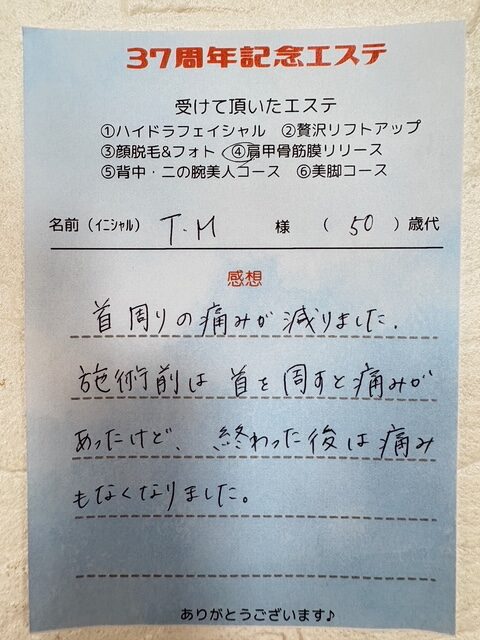 37周年記念エステ
受けて頂いたエステ
①ハイドラフェイシャル ②贅沢リフトアップ
③顔脱毛&フォト ④肩甲骨筋膜リリース
⑤背中・二の腕美人コース ⑥美脚コース
名前（イニシャル） T.M 様 （ 50 ）歳代
感想
首周りの痛みが減りました.
施術前は首を周すと痛みが
あったけど、終わった後は痛み
もなくなりました。
ありがとうございます♪